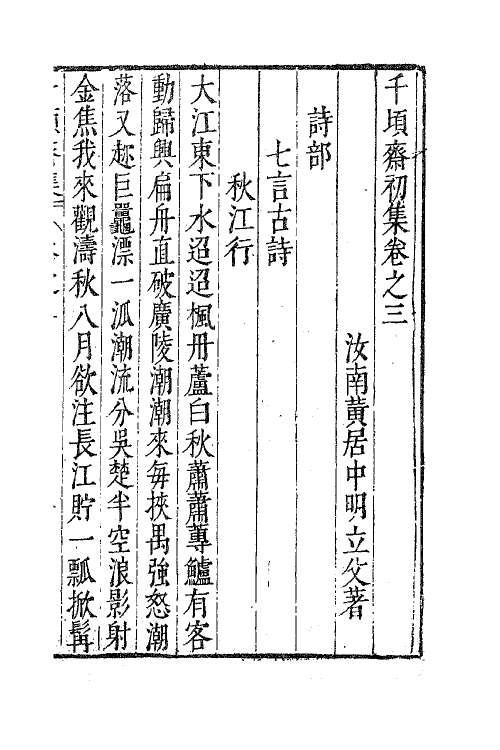 千頃齋初集卷之三
汝南黃居中明立父著
詩部
七言古詩
秋江行
大江東下水迢迢楓冊蘆白秋蕭蕭蓴鱸有客
動歸興扁舟直破廣陵潮潮來每挾禺強怒潮
落又趂巨鼉漂一泒潮流分吳楚半空浪影射
金焦我來觀濤秋八月欲注長江貯一瓢掀髯